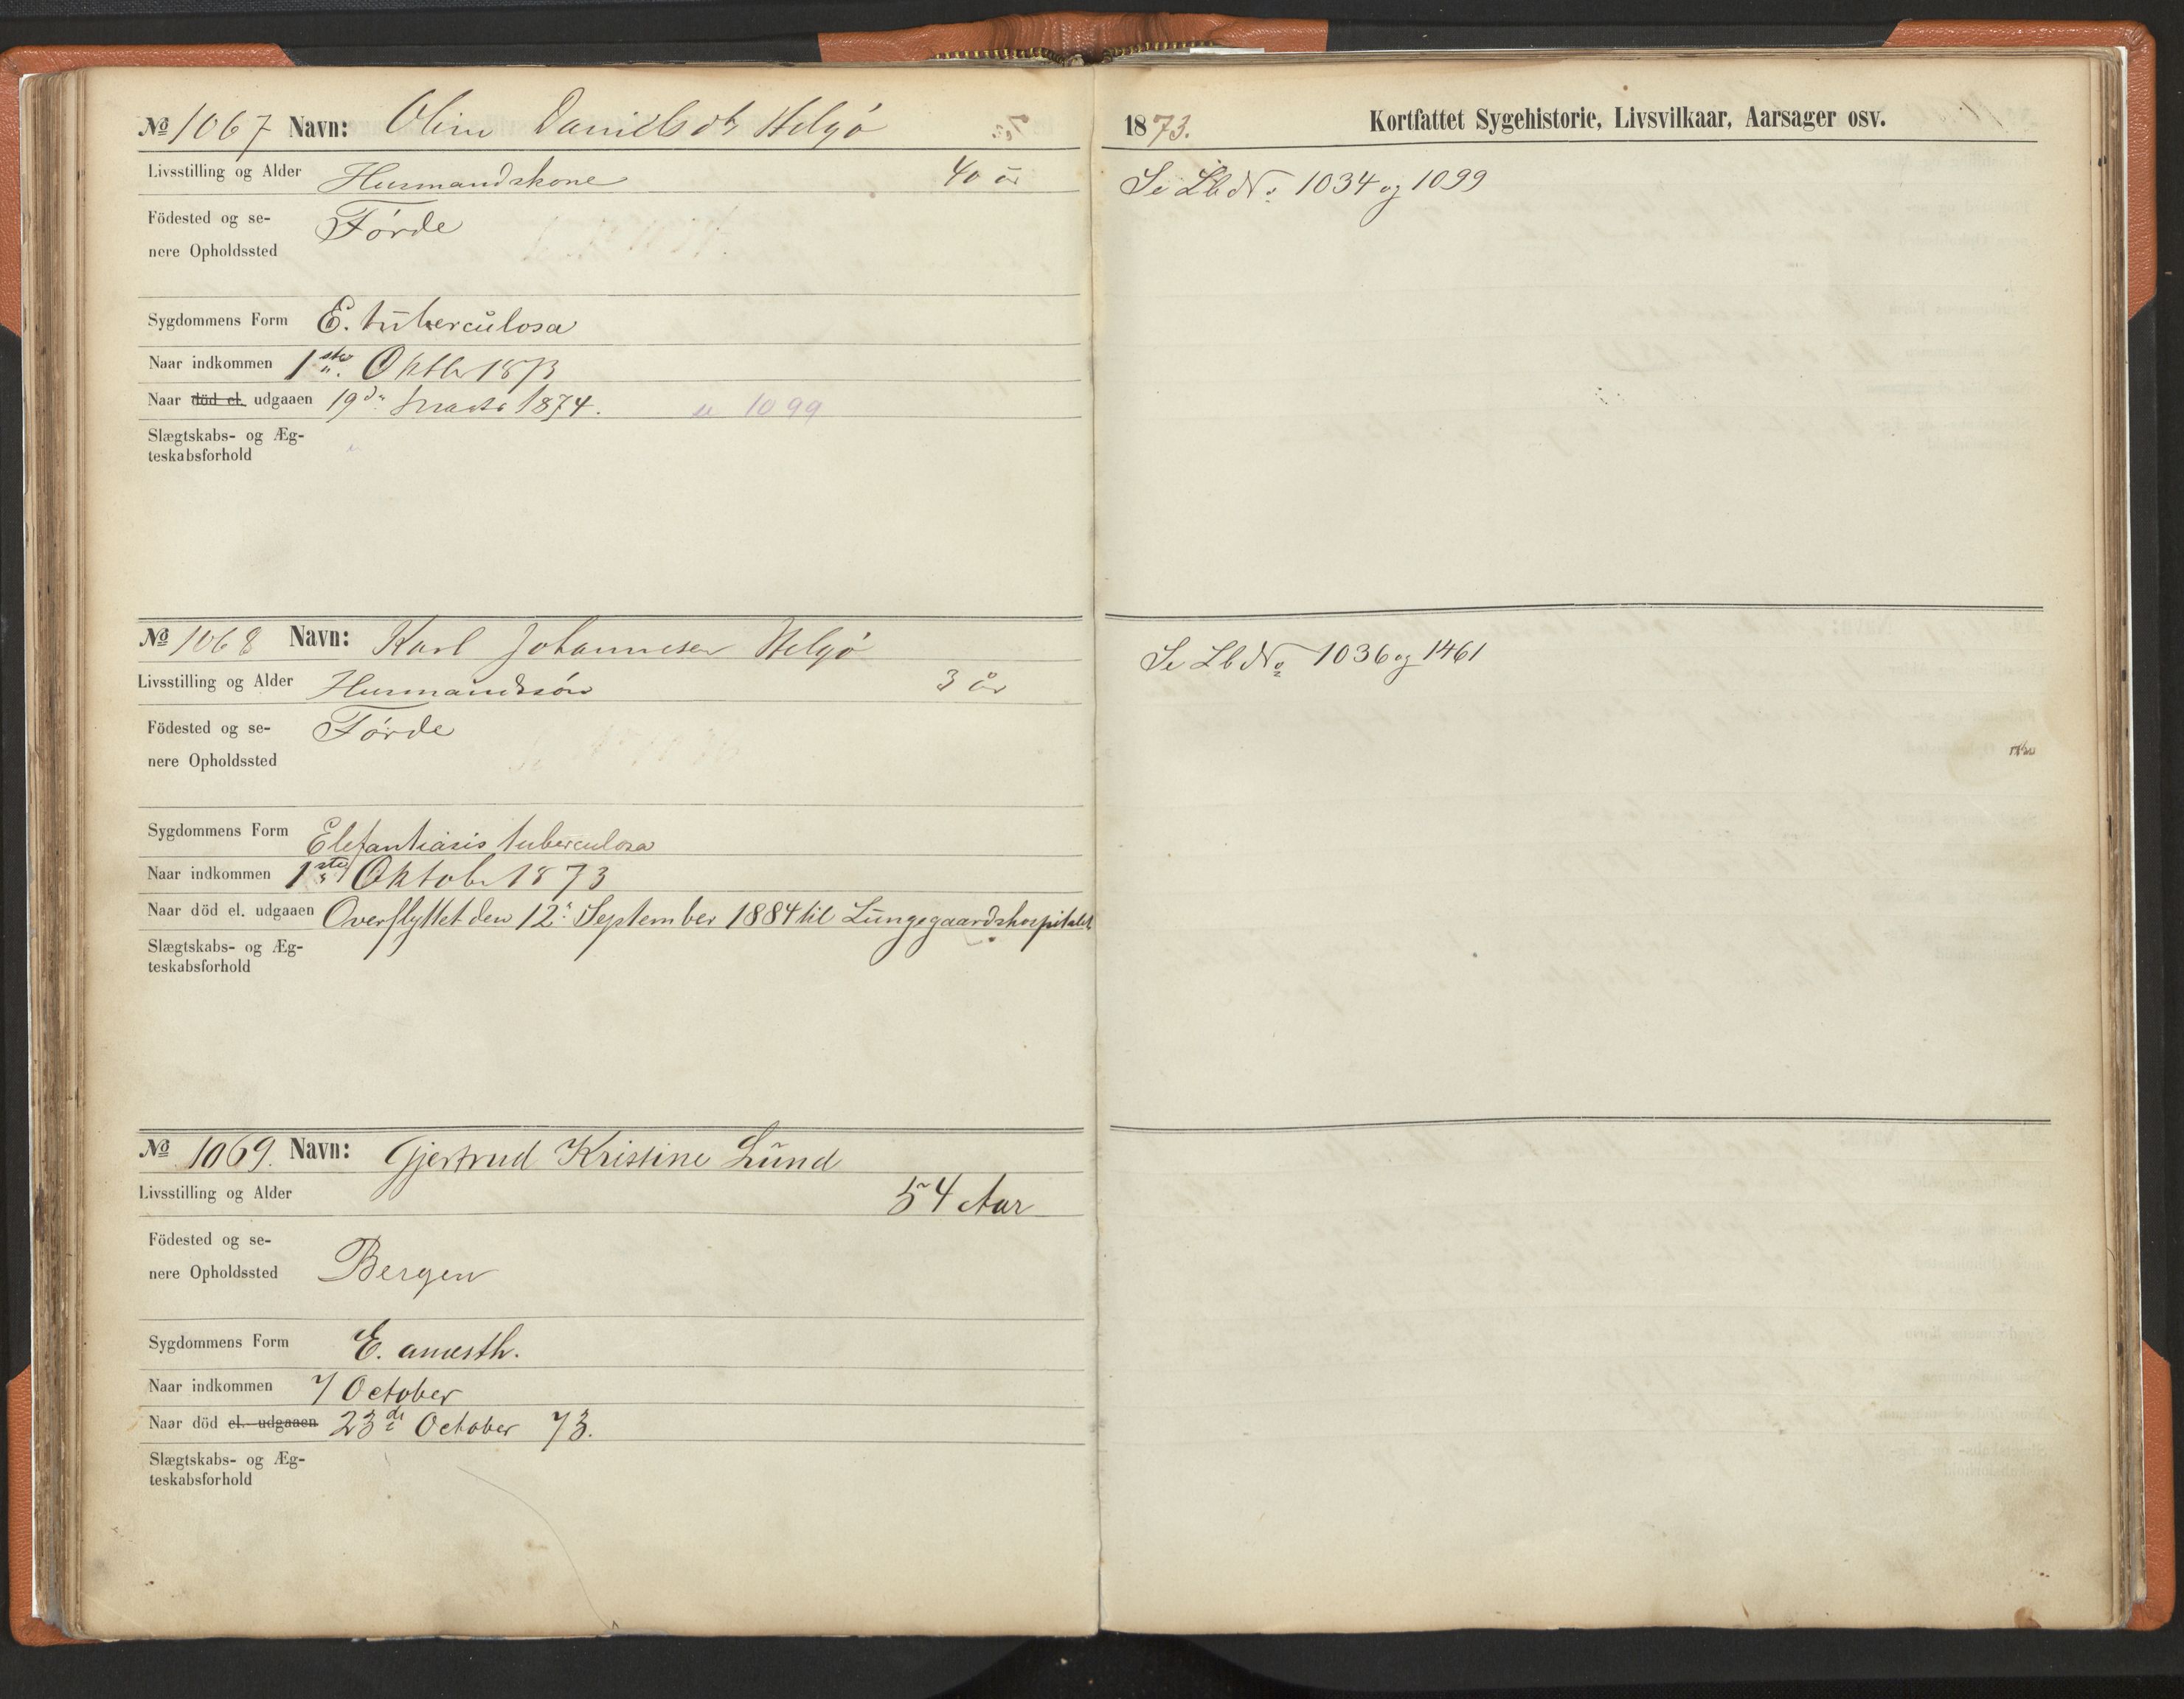 № 1067 Navn: Oline Danielsdtr Helgø
Livsstilling og Alder Husmandskone 40 år
Födested og se- Förde
nere Opholdssted
Sygdommens Form E. tuberculosa
Naar indkommen 1ste Oktbr 1873
Naar död el. udgaaen 19de Marts 1874. 1099
Slægtskabs- og Æg-
teskabsforhold
№ 1068 Navn: Karl Johannesen Helgø
Livsstilling og Alder Husmandssön 3 år
Födested og se- Förde
nere Opholdssted
Sygdommens Form Elefantiasis tuberculosa
Naar indkommen 1ste Oktobr 1873
Naar död el. udgaaen Overflyttet den 12: September 1884 til Lungegaardshospitalet
Slægtskabs- og Æg-
teskabsforhold
№ 1069. Navn: Gjertrud Kristine Lund
Livsstilling og Alder 54 Aar
Födested og se-
nere Opholdssted Bergen
Sygdommens Form E. anæsth.
Naar indkommen 7 October
Naar död el. udgaaen 23de October 73.
Slægtskabs- og Æg-
teskabsforhold
1873. Kortfattet Sygehistorie, Livsvilkaar, Aarsager osv.
Se Lb№ 1034 og 1099
Se Lb№ 1036 og 1461